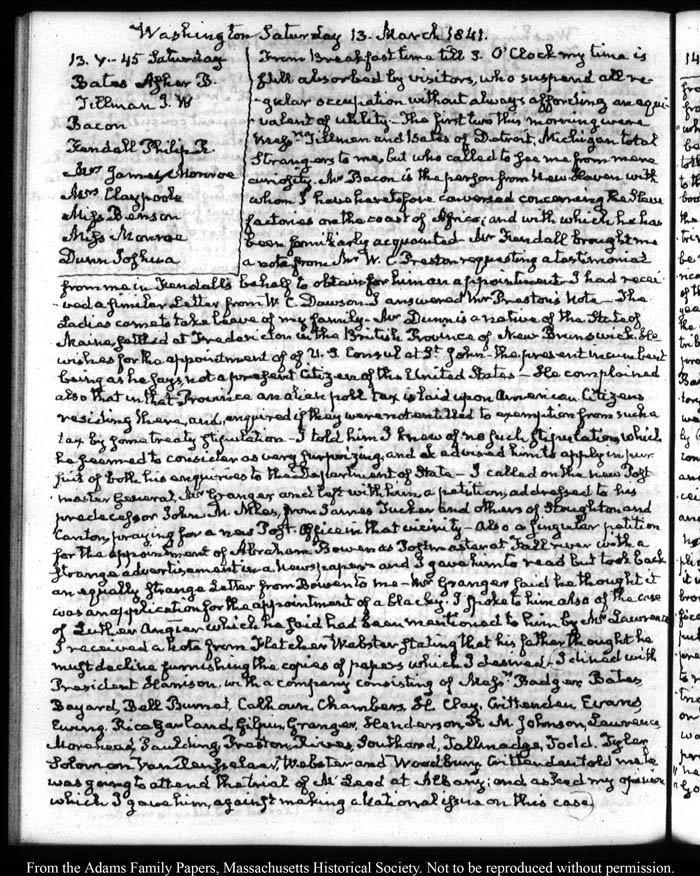 Washington Saturday 13. March 1841.
13. V-45 Saturday
Bates Asher B.
Tillman J. W
Bacon
Kendall Philip R.
Mrs James Monroe
Mrs Claypoole
Miss Benson
Miss Monroe
Dunn Joshua
From Breakfast time till 3. O'Clock my time is
still absorbed by visitors, who suspend all re-
gular occupation without always affording an equi-
valent of utility. The first two this morning were
Messrs Tillman and Bates of Detroit, Michigan total
Strangers to me, but who called to see me from mere
curiosity. Mr Bacon is the person from New Haven with
whom I have heretofore conversed concerning the Slave
factories on the coast of Africa; and with which he has
been familiarly acquainted. Mr Kendall brought me
a note from Mr W. C. Preston requesting a testimonial
from me in Kendall's behalf to obtain for him an appointment. I had recei-
ved a similar Letter from W. C. Dawson. I answered Mr Preston's Note - The
Ladies came to take leave of my family - Mr Dunn is a native of the State of
Maine, settled at Fredericton in the British Province of New Brunswick. He
wishes for the appointment of of U. S. Consul at St. John - the present incumbent
being as he says not a present Citizen of the United States - He complained
also that in that Province an alien poll tax is laid upon American Citizens
residing there, and, enquired if they were not entitled to exemption from such a
tax by some treaty stipulation - I told him I knew of no such stipulation, which
he seemed to consider as very surprizing, and I advised him to apply in pur-
suit of both his enquiries to the Department of State - I called on the new Post
master General, Mr Granger and left with him a petition, addressed to his
predecessor John M. Niles, from James Tucker and others of Stoughton and
Canton, praying for a new Post-Office in that vicinity - Also a singular petition
for the appointment of Abraham Bowen as Postmaster at Fall river with a
strange advertisement in a newspaper - and I gave him to read but took back
an equally strange Letter from Bowen to me - Mr Granger said he thought it
was an application for the appointment of a blackey. I spoke to him also of the case
of Luther Angier which he said had been mentioned to him by Mr Lawrence
I received a Note from Fletcher Webster stating that his father thought he
must decline furnishing the copies of papers which I desired. I dined with
President Harrison, with a company consisting of Messrs Badger, Bates
Bayard, Bell Burnet, Calhoun, Chambers, H. Clay, Crittenden, Evans
Ewing, Rice Garland, Gilpin, Granger, Henderson, R. M. Johnson, Lawrence
Morehead, Paulding, Preston, Rives, Southard, Tallmadge, Todd, Tyler
Solomon Van Rensselaer, Webster and Woodbury. Crittenden told me he
was going to attend the trial of McLeod at Albany; and asked my opinion
which I gave him, against making a National issue on this case
From the Adams Family Papers, Massachusetts Historical Society. Not to be reproduced without permission.